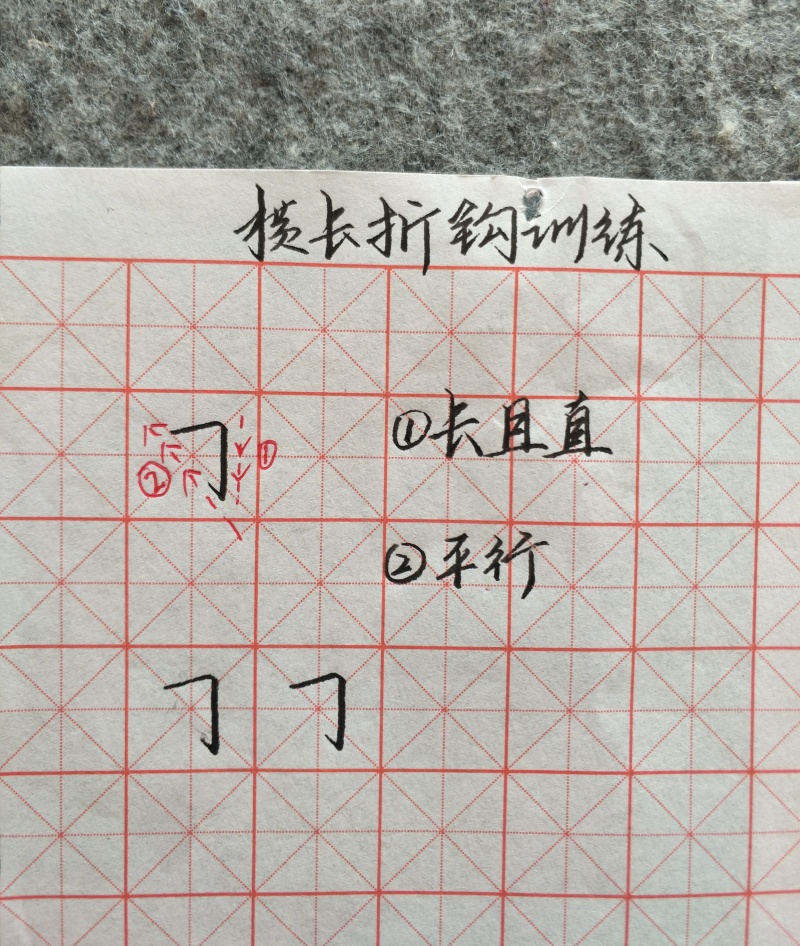 横长折钩训练
①长且直
② ①
②平行